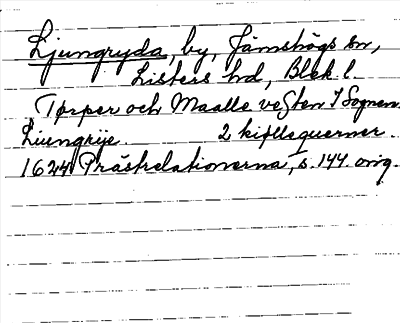 Ljungryda, by, Jämshögs sn,
Listers hd, Blek. l.
Torper och Maalle vesten I Sognen.
Liungrije. 2 kiplsquerner.
1624 Prästrelationerna, s. 144 orig.